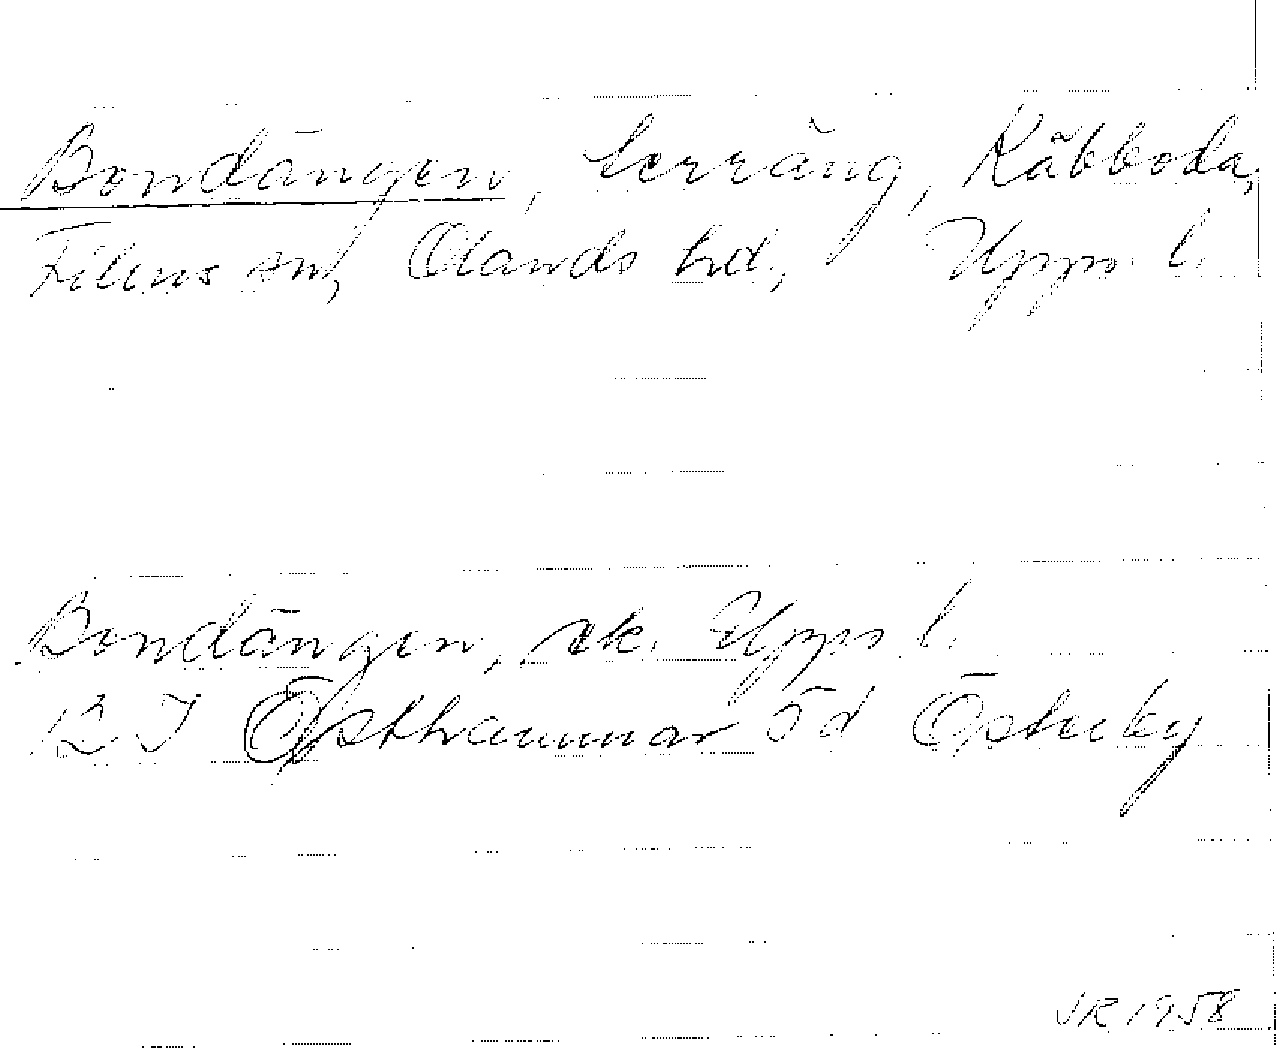 Bondängen, terräng, Käbboda,
Films sn, Olands hd., Upps. l.
Bondängen, ek. Upps l.
12 I Östhammar öd Österby
JR 1958